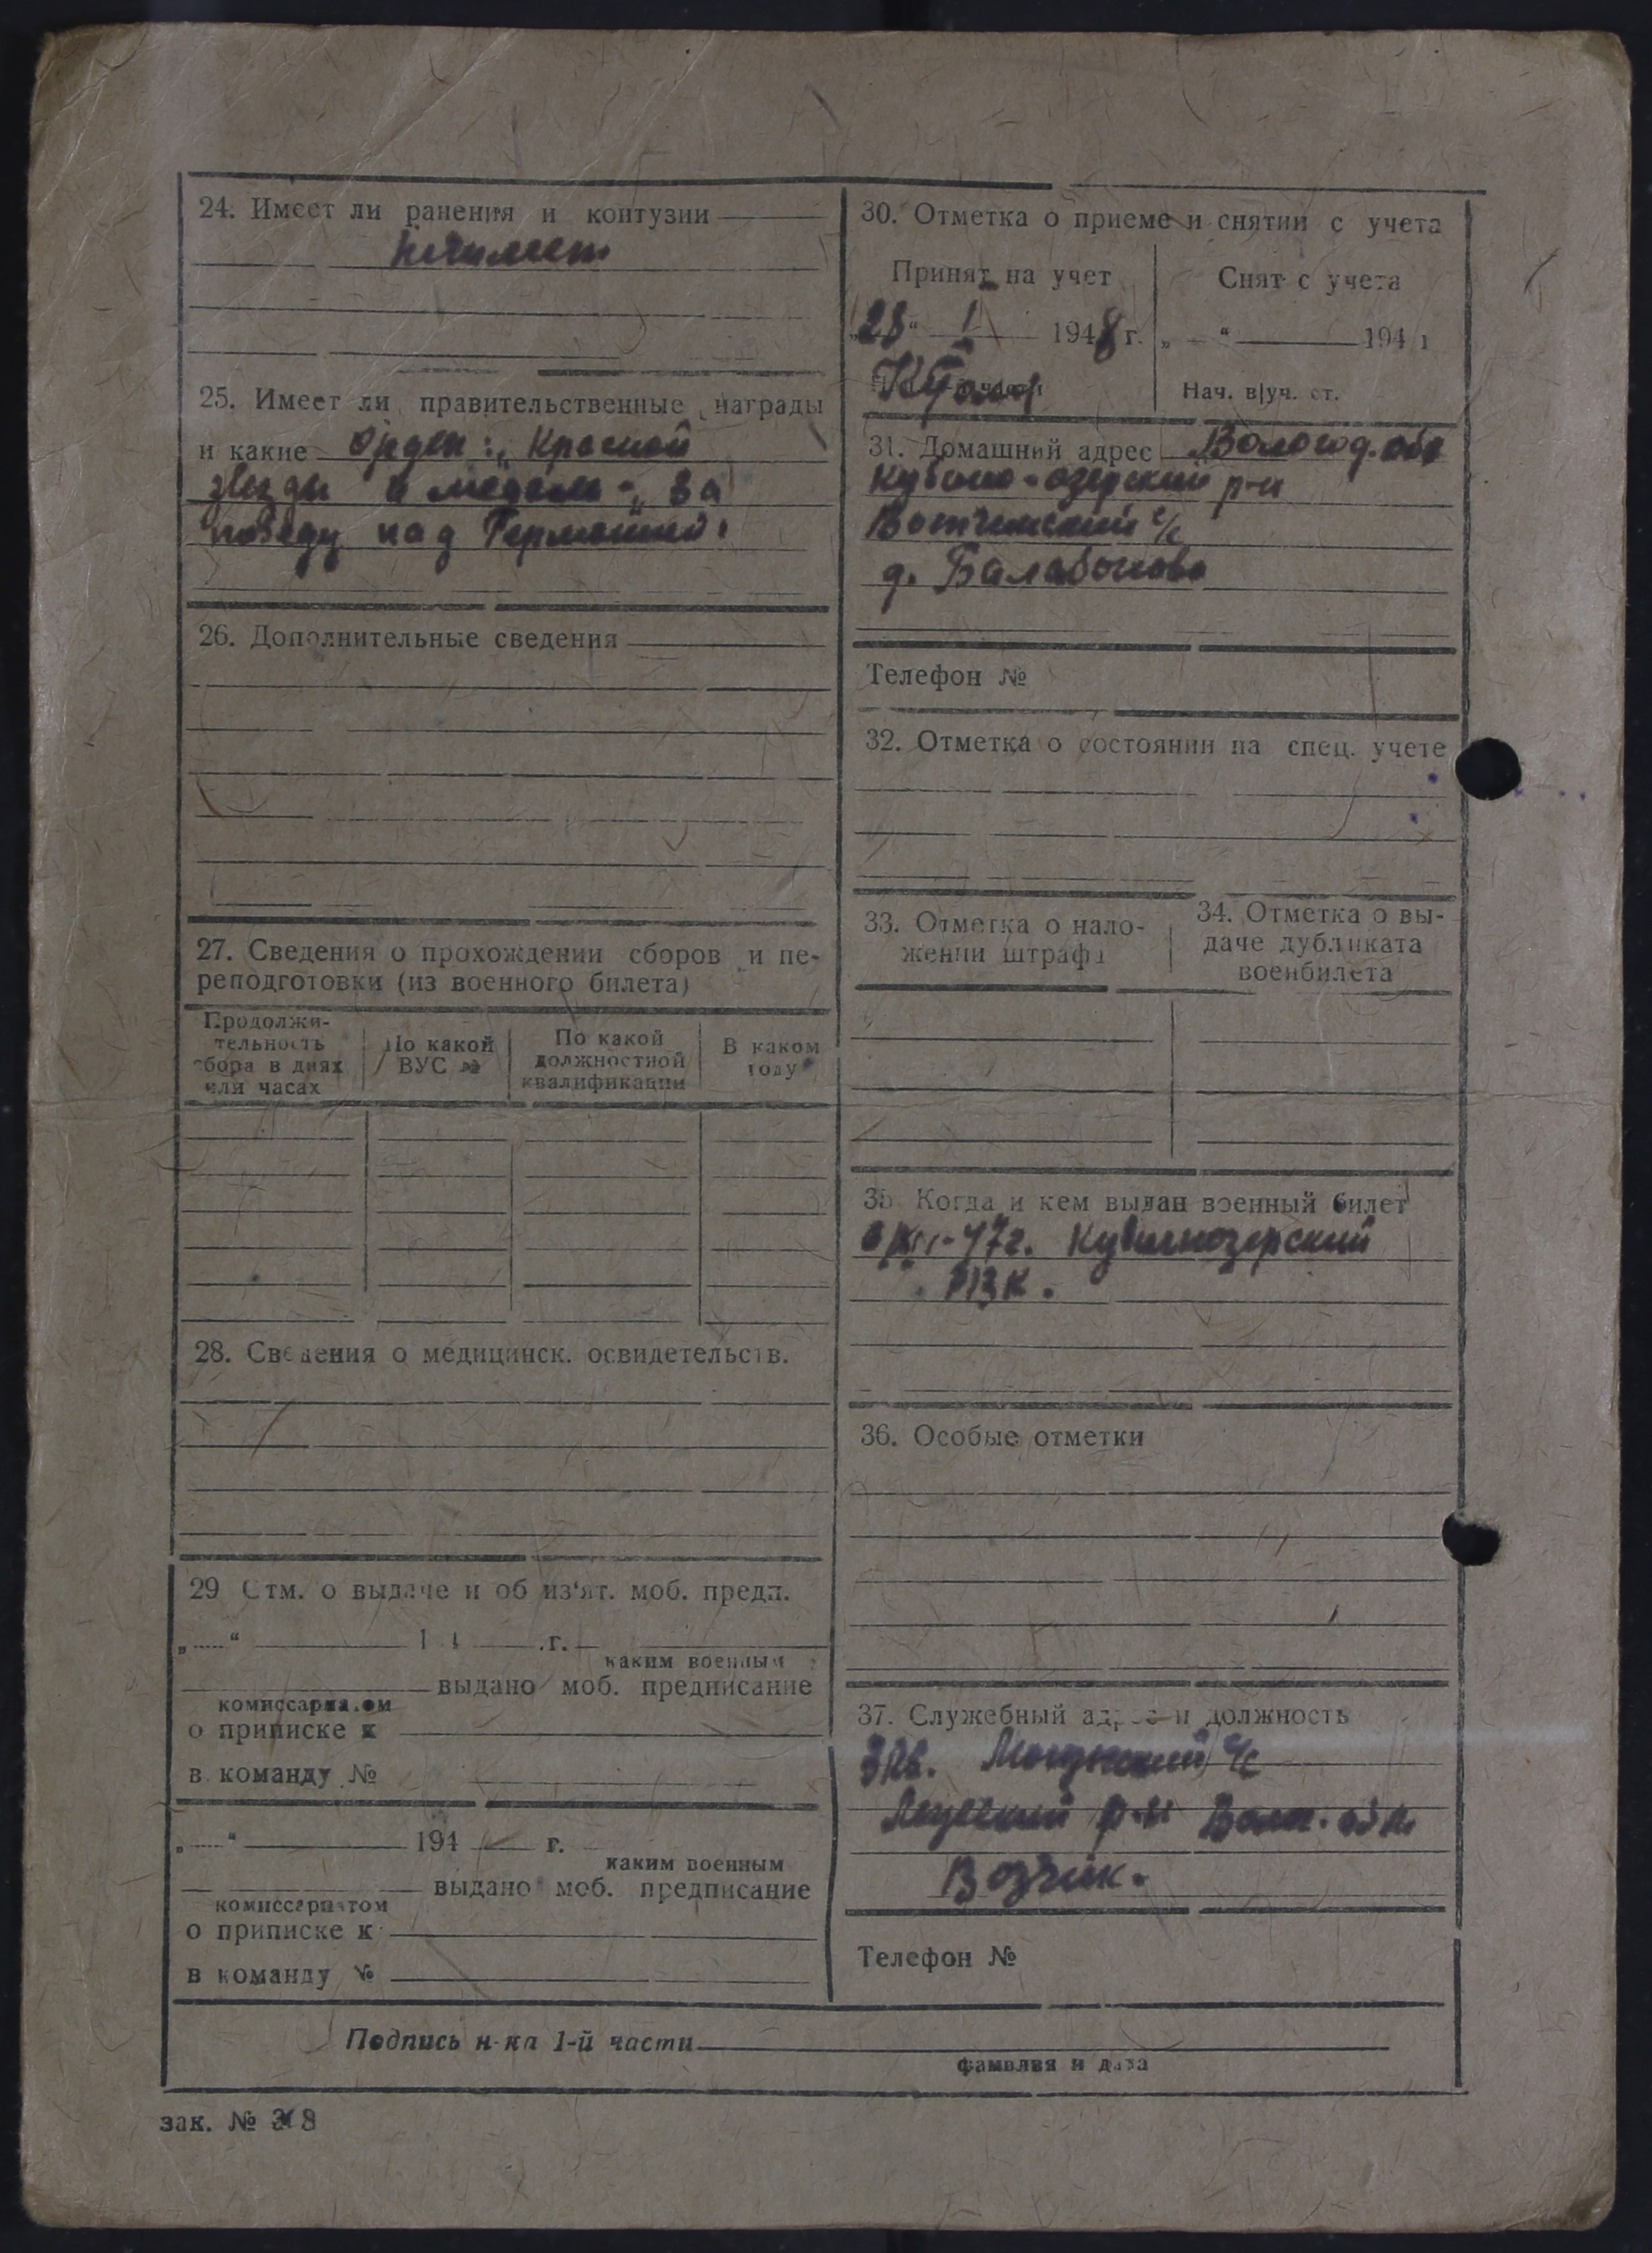 24. Имеет ли ранения и контузии
Не имеет
25. Имеет ли правительственные награды
и какие Орден: „Красной
звезды и медаль - „За
победу над Германией"
26. Дополнительные сведения
27. Сведения о прохождении сборов и пе-
реподготовки (из военного билета)
Продолжи-
тельность
сбора в днях
или часах
По какой
ВУС №
По какой
должностной
квалификации
В каком
году
28. Сведения о медицинск. освидетельств.
29 Отм. о выдаче и об из'ят. моб. предп.
„ “ 194 г.
каким военным
выдано моб. предписание
комиссариатом
о приписке к
в команду №
„ “ 194 г.
каким военным
выдано моб. предписание
комиссариатом
о приписке к
в команду №
30. Отметка о приеме и снятии с учета
Принят на учет
„28“ I 1948 г.
Снят с учета
„ “ 194 г
Нач. в|уч. ст.
31. Домашний адрес Вологод. обл
Кубино-озерский р-н
Вотчинский с/с
д. Балабоново
Телефон №
32. Отметка о состоянии на спец. учете
33. Отметка о нало-
жении штрафа
34. Отметка о вы-
даче дубликата
военбилета
35 Когда и кем выдан военный билет
47г. Кубиноозерский
РВК.
36. Особые отметки
37. Служебный адрес и должность
с/с
р-н обл.
Возчик.
Телефон №
Подпись н-ка 1-й части
фамилия и дата
зак. №